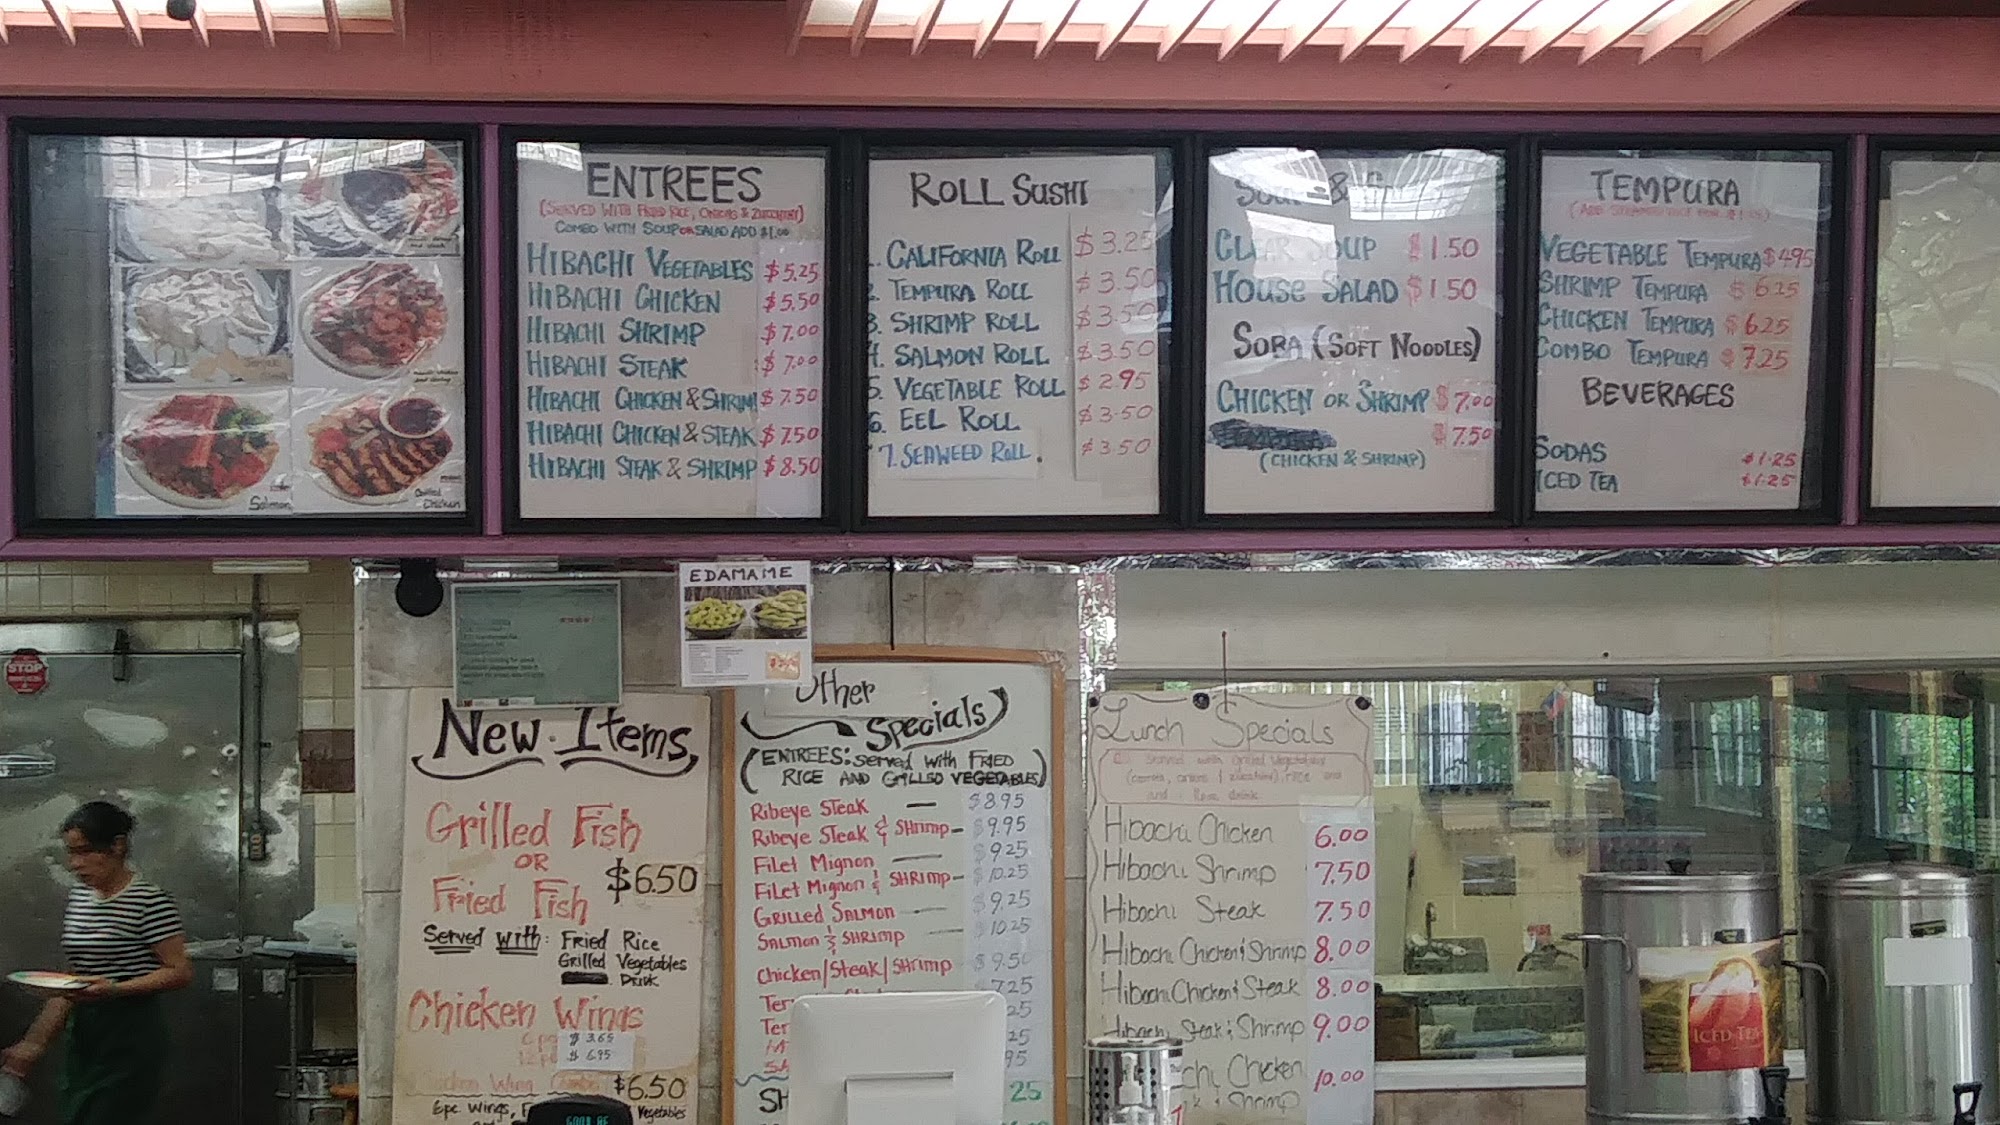 Salmon
Grilled
Chicken
ENTREES
(SERVED WITH FRIED RICE, ONIONS & ZUCCHINI)
COMBO WITH SOUP OR SALAD ADD $1.00
HIBACHI VEGETABLES $5.25
HIBACHI CHICKEN $5.50
HIBACHI SHRIMP $7.00
HIBACHI STEAK $7.00
HIBACHI CHICKEN & SHRIM $7.50
HIBACHI CHICKEN & STEAK $7.50
HIBACHI STEAK & SHRIMP $8.50
ROLL SUSHI
. CALIFORNIA ROLL $3.25
2. TEMPURA ROLL $3.50
3. SHRIMP ROLL $3.50
4. SALMON ROLL $3.50
5. VEGETABLE ROLL $2.95
6. EEL ROLL $3.50
7. SEAWEED ROLL. $3.50
&
CLEAR SOUP $1.50
HOUSE SALAD $1.50
SOBA (SOFT NOODLES)
CHICKEN OR SHRIMP $7.00
$7.50
(CHICKEN & SHRIMP)
TEMPURA
VEGETABLE TEMPURA $4.95
SHRIMP TEMPURA $6.25
CHICKEN TEMPURA $6.25
COMBO TEMPURA $7.25
BEVERAGES
SODAS $1.25
ICED TEA $1.25
STOP
EDAMAME
New Items
Grilled Fish
OR
Fried Fish $6.50
Served with: Fried Rice
Grilled Vegetables
Drink
Chicken Wings
6 pc $3.65
12 pc $6.95
$6.50
6pc. Wings, F Vegetables
Other
Specials
(ENTREES: Served with FRIED
RICE AND GRILLED VEGETABLES)
Ribeye Steak — $8.95
Ribeye Steak & Shrimp - $9.95
Filet Mignon — $9.25
Filet Mignon & SHRIMP - $10.25
GRILLED SALMON — $9.25
SALMON & SHRIMP $10.25
Chicken/Steak/Shrimp $9.50
Ter 7.25
Ter 25
25
SA 95
SH 25
Lunch Specials
Served with Grilled Vegetables
(carrots, onions & zucchini), rice and
and drink
Hibachi Chicken 6.00
Hibachi Shrimp 7.50
Hibachi Steak 7.50
Hibachi Chicken & Shrimp 8.00
Hibachi Chicken & Steak 8.00
Hibachi Steak & Shrimp 9.00
chi Chicken 10.00
k & Shrimp
ICED TEA